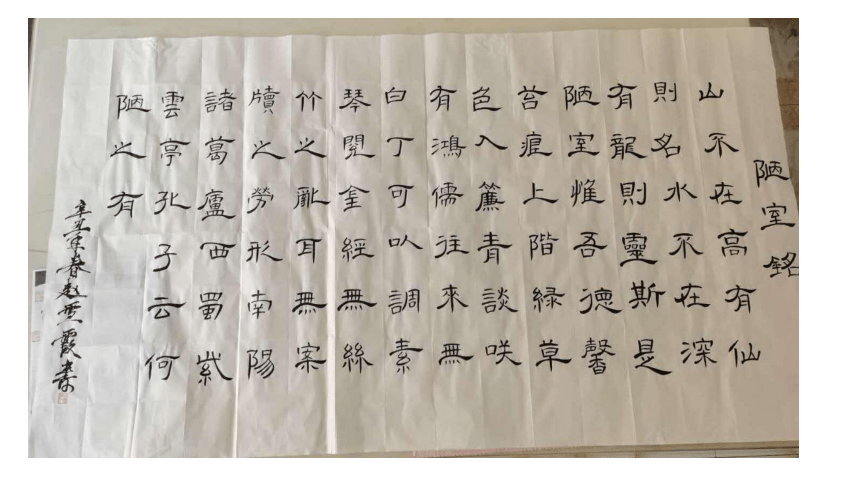 陋室銘
山不在高有仙
則名水不在深
有龍則靈斯是
陋室惟吾德馨
苔痕上階緑草
色入簾青談咲
有鴻儒往來無
白丁可以調素
琴閱金經無絲
竹之亂耳無案
牘之勞形南陽
諸葛廬西蜀紫
雲亭孔子云何
陋之有
辛丑年春赵霞書